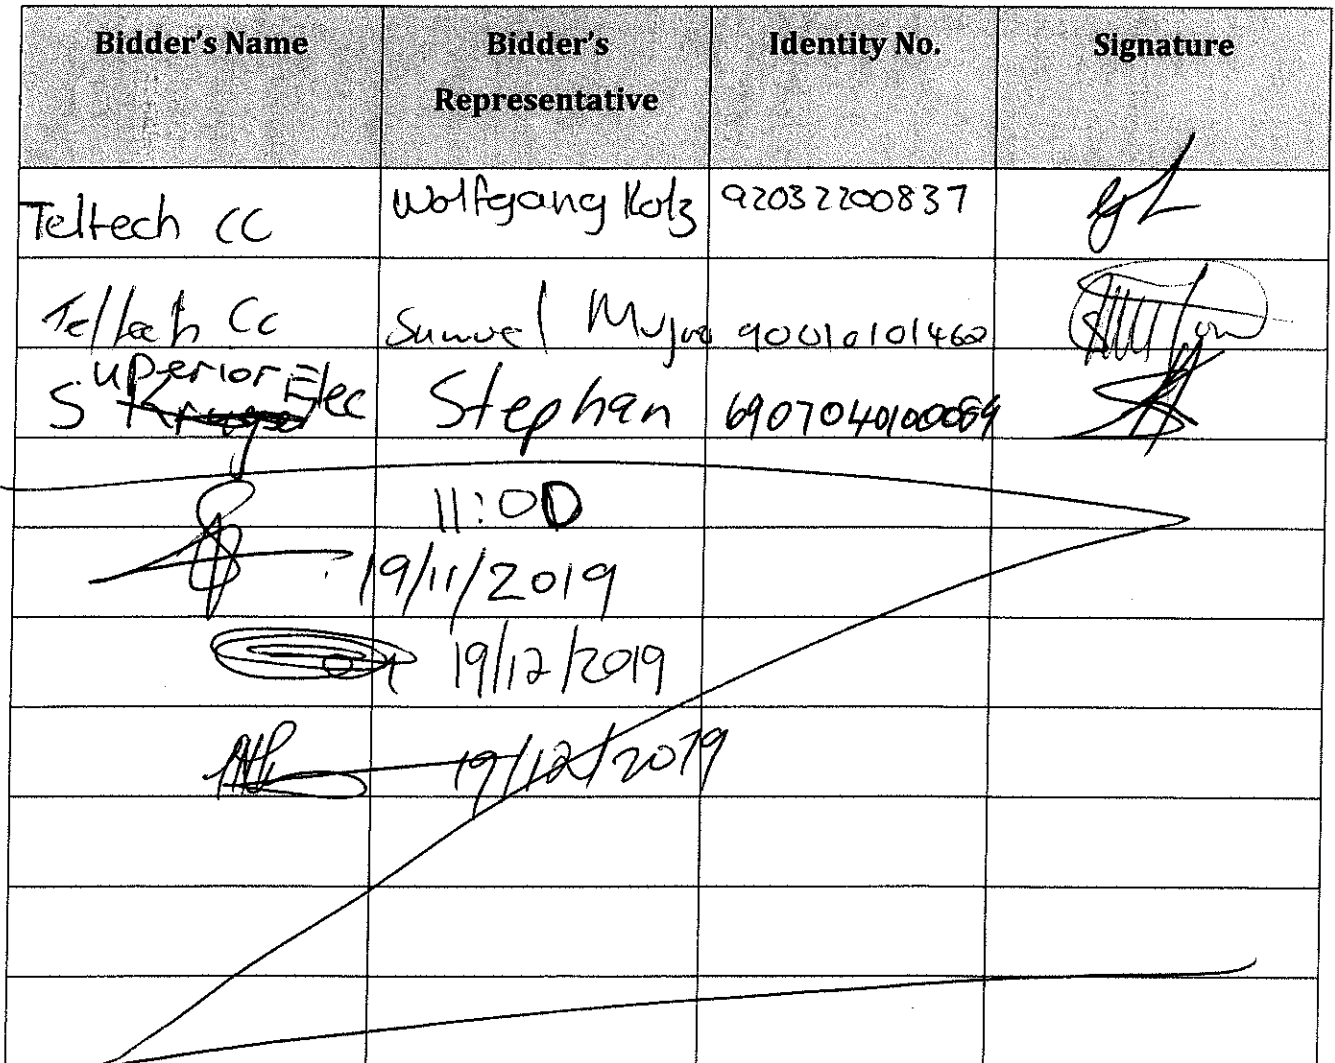 Bidder's Name Bidder's Representative Identity No. Signature
Teltech CC Wolfgang Kotz 92032200837
Teltech Cc 90010101460
Superior Elec Stephan 6907040100089
11:00
19/11/2019
19/12/2019
19/12/2019